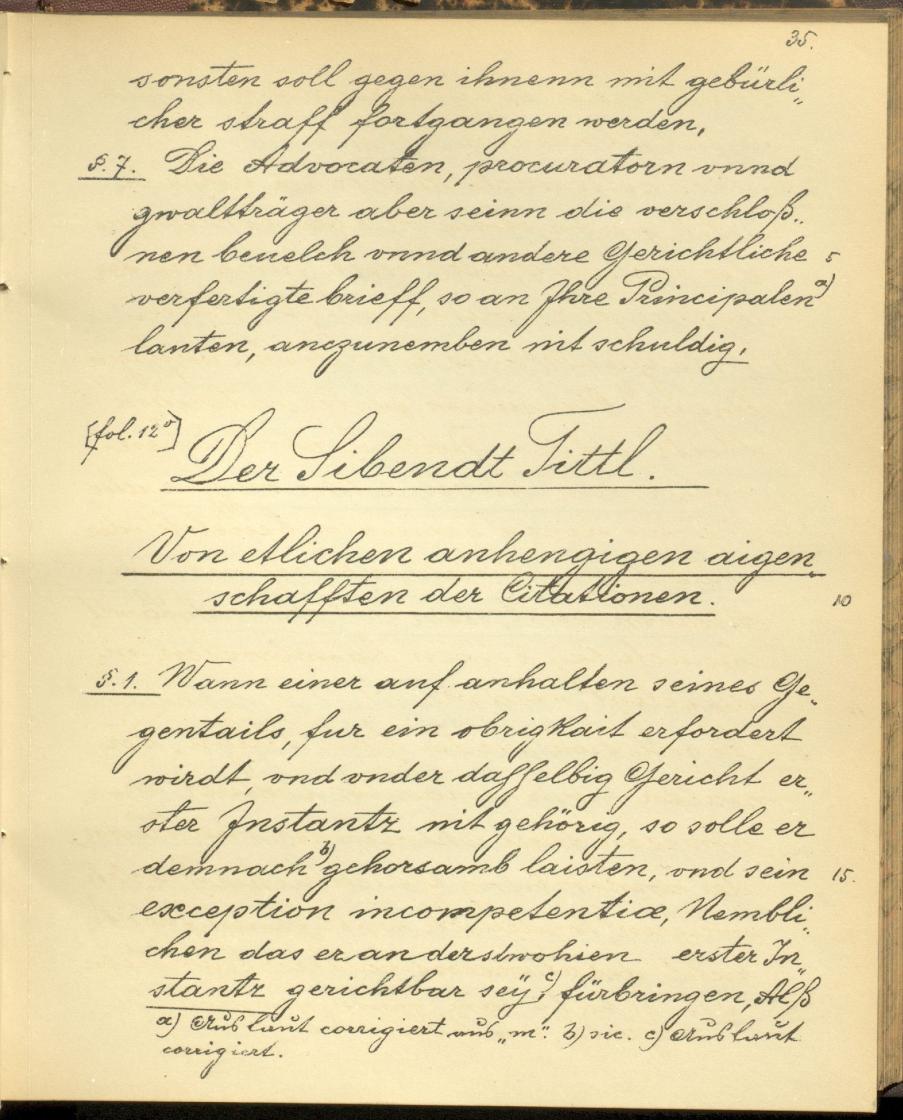 35.
sonsten soll gegen ihnenn mit gebürli„
cher straff fortgangen werden,
§. 7. Die Advocaten, procuratorn vnnd
gwaltträger aber seinn die verschloß„
nen beuelch vnnd andere Gerichtliche 5
verfertigte brieff, so an Ihre Principalen a)
lauten, anczunemben nit schuldig.
[fol. 12v]
Der Sibendt Tittl.
Von etlichen anhengigen aigen„
schafften der Citationen. 10
§. 1. Wann einer auf anhalten seines Ge„
gentails, fur ein obrigkait erfordert
wirdt, vnd vnder dasselbig Gericht er„
ster Instantz nit gehörig, so solle er
demnach b) gehorsamb laisten, vnd sein 15.
exception incompetentiæ, Nembli„
chen das er anderstwohien erster In„
stantz gerichtbar seÿ, c) fürbringen, Alß
a) Auslaut corrigiert aus „m“. b) sic. c) Auslaut
corrigiert.